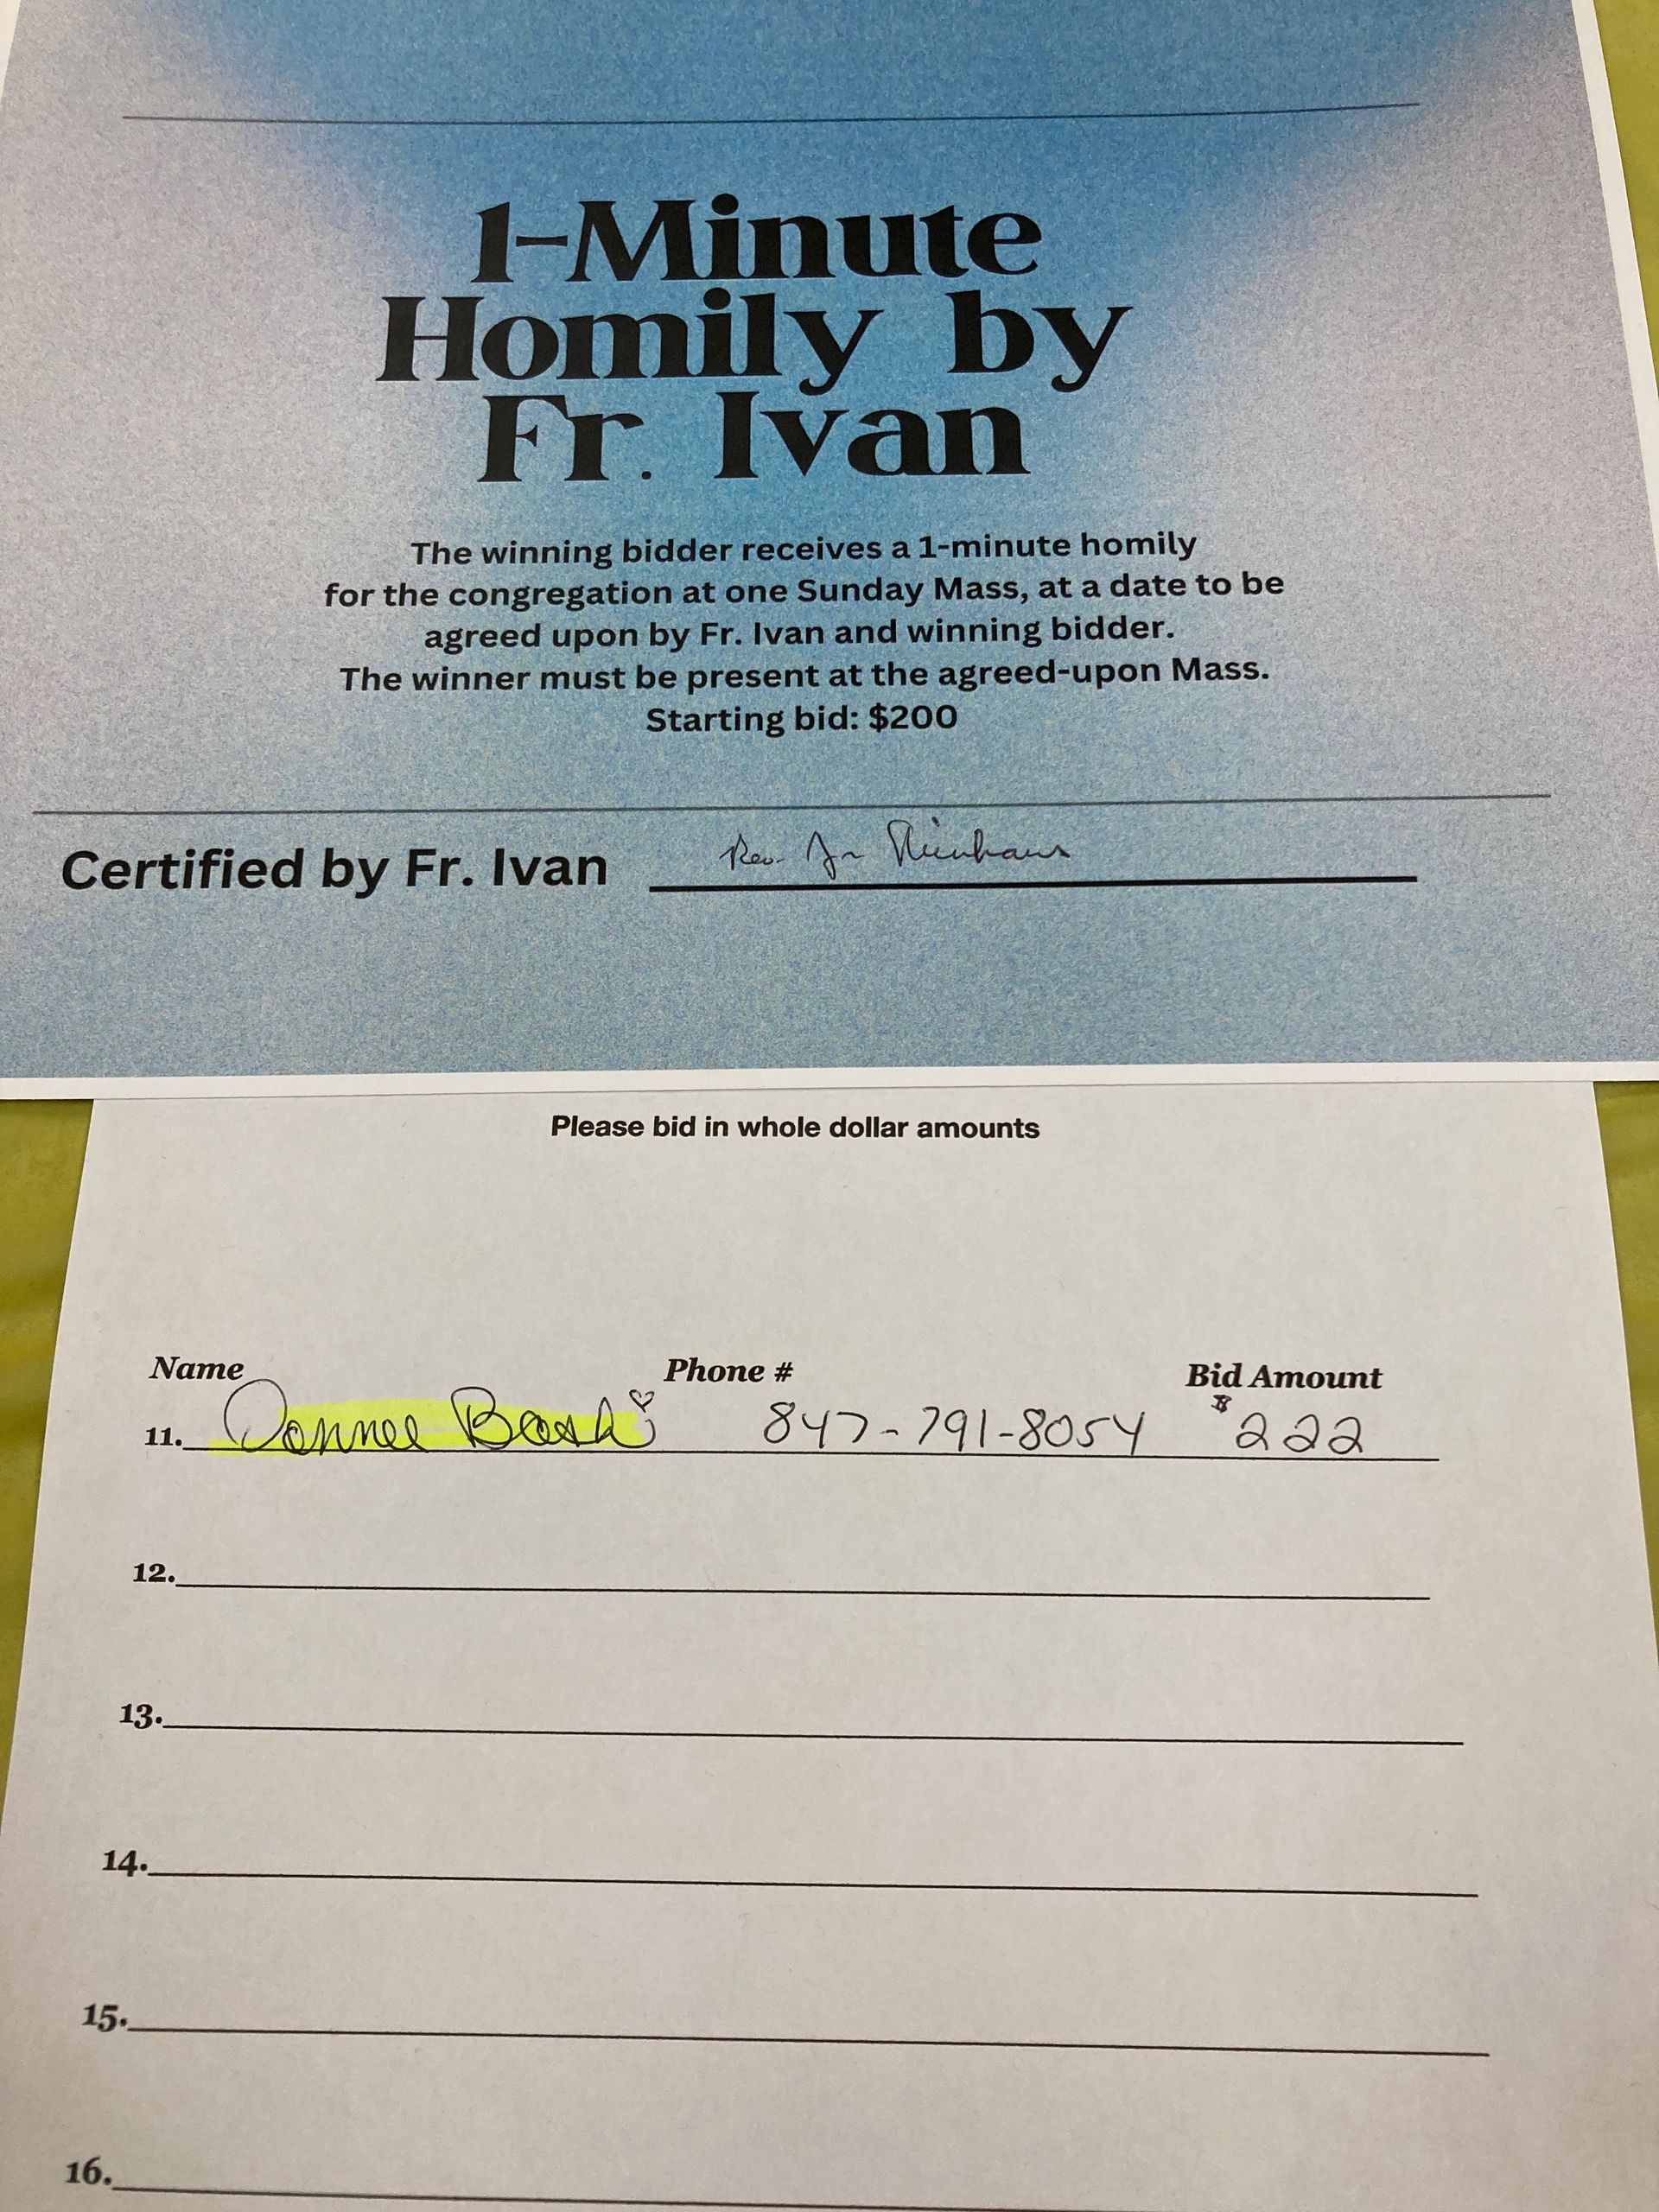 1-Minute
Homily by
Fr. Ivan
The winning bidder receives a 1-minute homily
for the congregation at one Sunday Mass, at a date to be
agreed upon by Fr. Ivan and winning bidder.
The winner must be present at the agreed-upon Mass.
Starting bid: $200
Certified by Fr. Ivan Rev.
Please bid in whole dollar amounts
Name Phone # Bid Amount
11. 847-791-8054 $222
12.
13.
14.
15.
16.